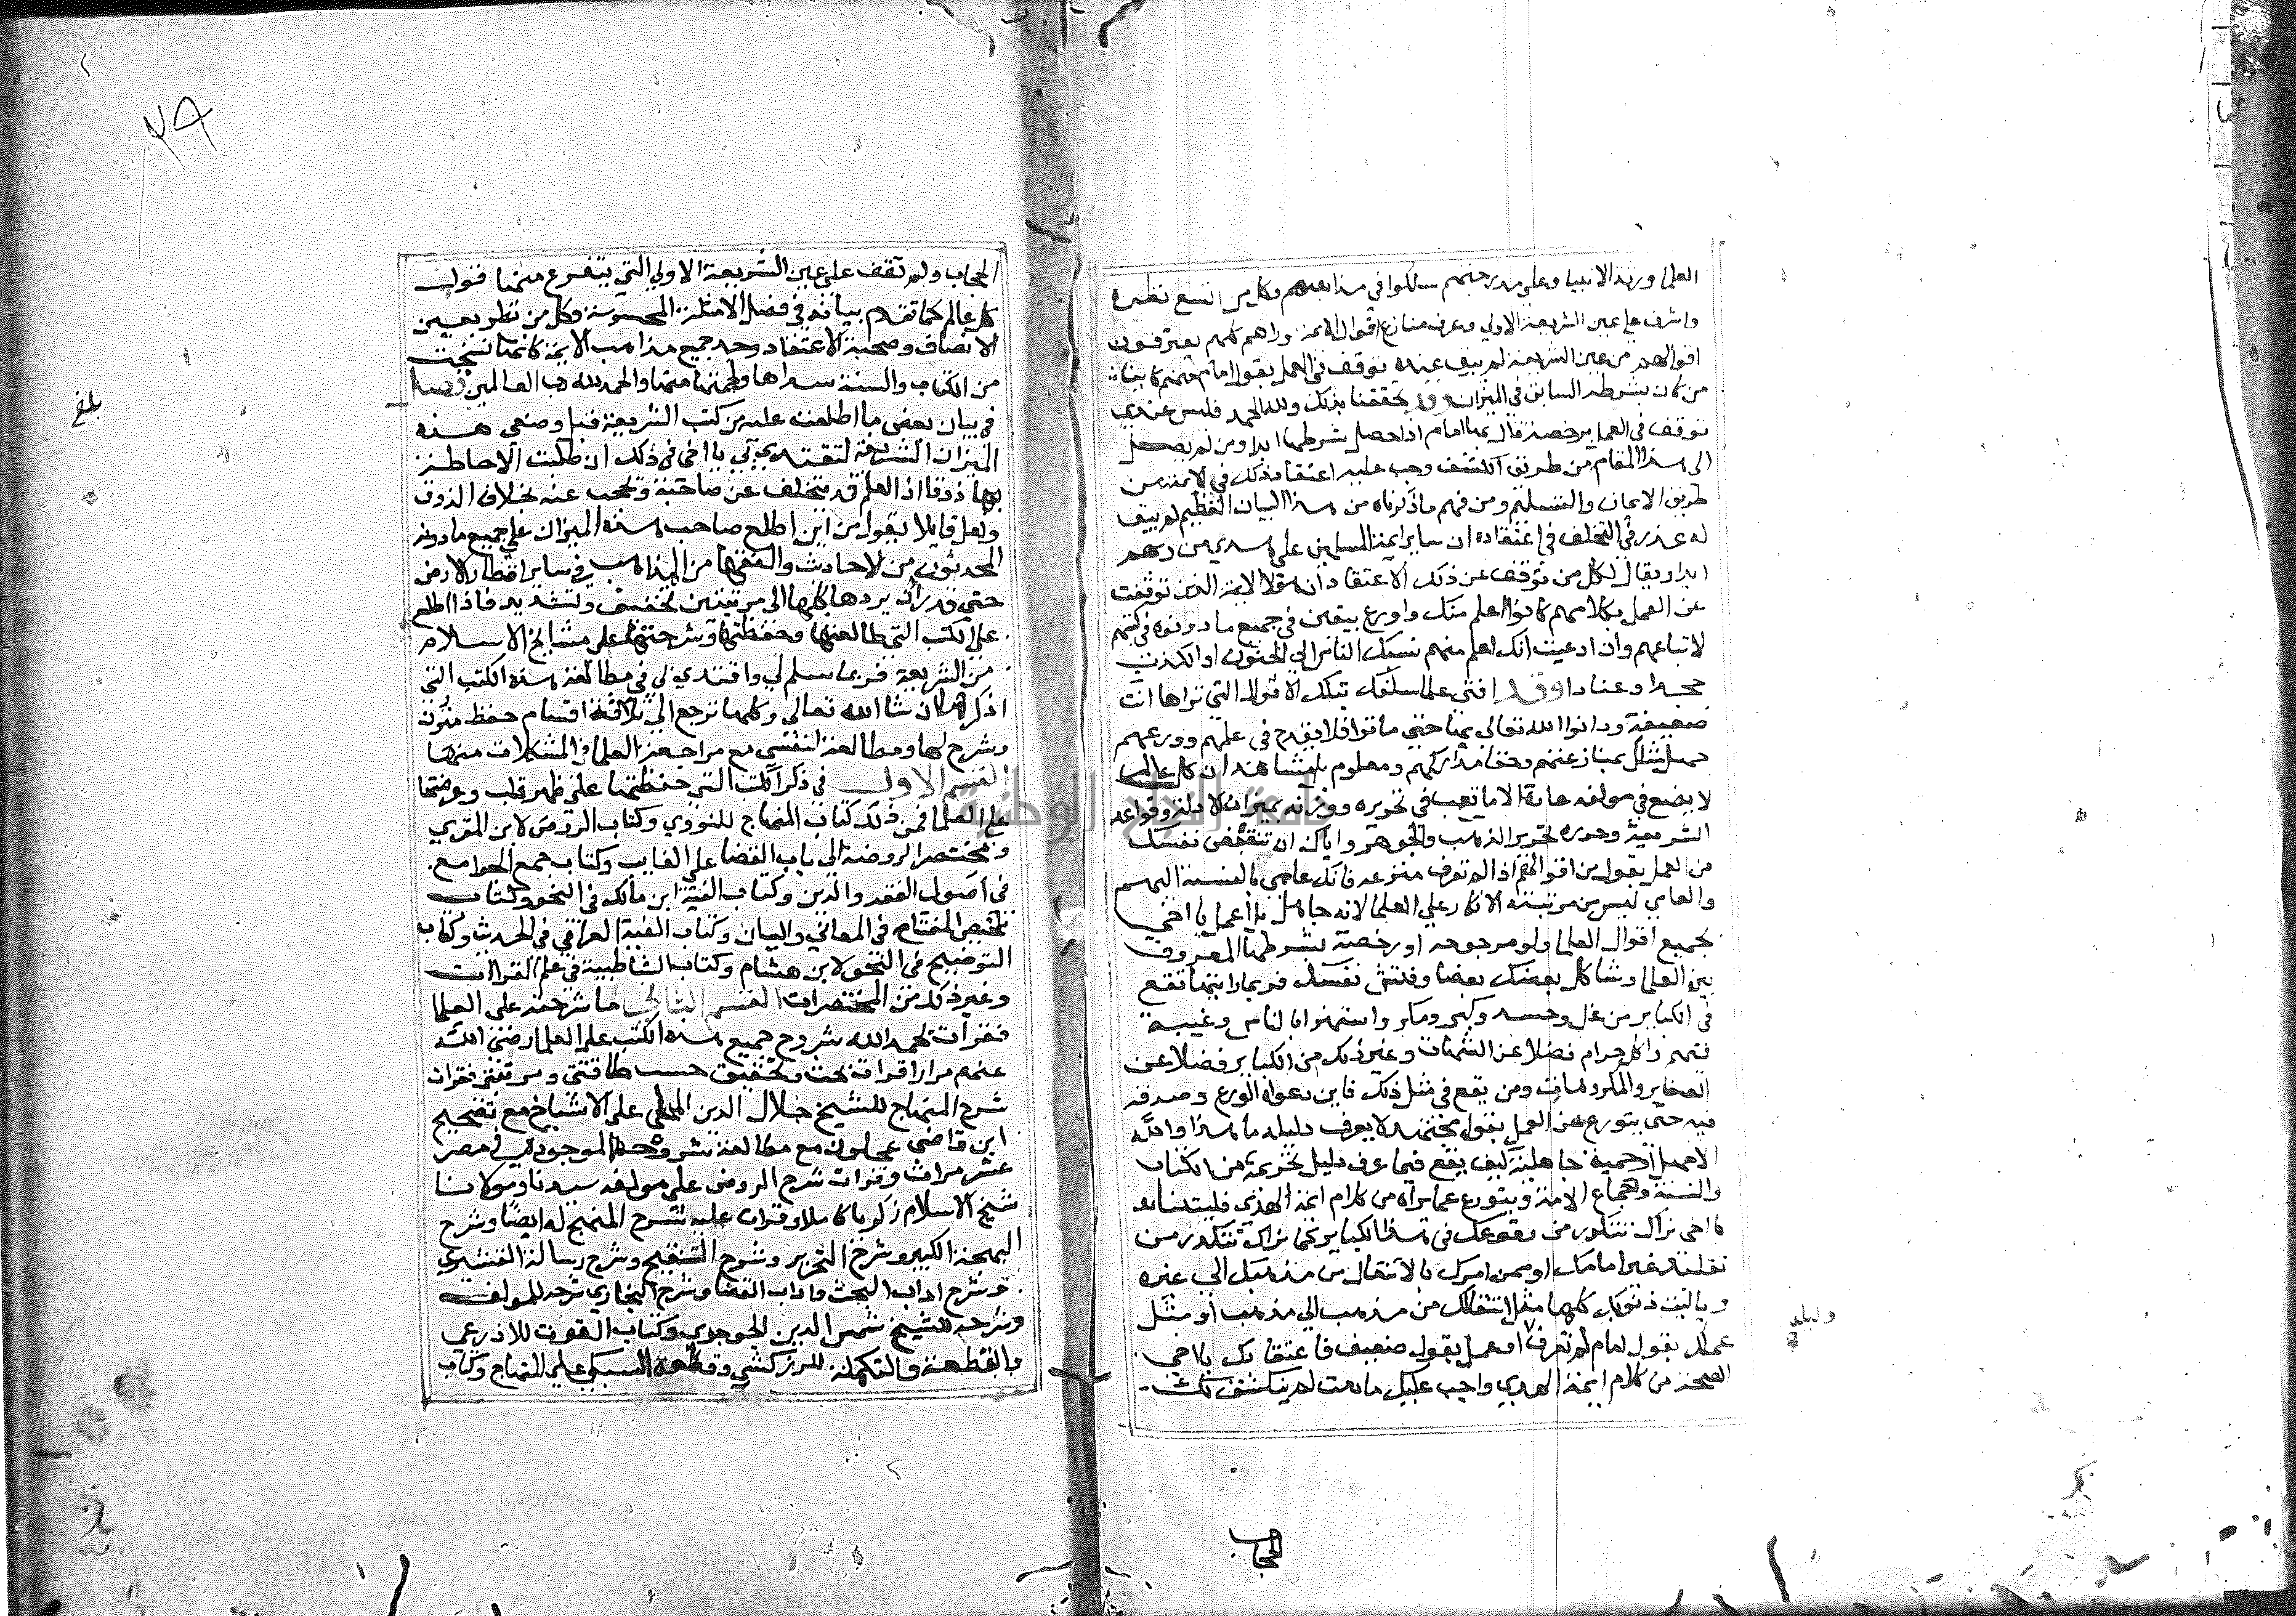 العلما ورثة الانبيا وعلي مدرجتهم سلكوا في مذاهبهم وكل من اتسع نظره
واشرف علي عين الشريعة الاولي وعرف منازع اقوال الايمة وراهم كلهم يغترفون
اقوالهم من عين الشريعة لم يبق عنده توقف في العمل بقول امام منهم كاينا
من كان بشرطه السابق في الميزان وقد تحققنا بذلك ولله الحمد فليس عندي
توقف في العمل برخصة قال بها امام اذا حصل شرطها ابدا ومن لم يصل
الي هذا المقام من طريق الكشف وجب عليه اعتقاد ذلك في الايمة من
طريق الايمان والتسليم ومن فهم ما ذكرناه من هذا البيان العظيم لم يبق
له عذر في التخلف في اعتقاده ان ساير ايمة المسلمين علي هدي من ربهم
ابدا ويقال لكل من توقف عن ذلك الاعتقاد ان هولا الايمة الذين توقفت
عن العمل بكلامهم كانوا اعلم منك واورع بيقين في جميع ما دونوه في كتبهم
لاتباعهم وان ادعيت انك اعلم منهم نسبك الناس الي الجنون او الكذب
جحدا وعنادا وقد افتي علما سلفك بتلك الاقوال التي تراها انت
ضعيفة ودانوا الله تعالي بها حتي ماتوا فلا يقدح في علمهم وورعهم
جهل مثلك بمنازعهم وخفا مداركهم ومعلوم بل مشاهد ان كل عالم
لا يضع في مولفه عادة الا ما تعب في تحريره ووزنه بميزان الادلة وقواعد
الشريعة وحرره تحرير الذهب والجوهر واياك ان تنقبض نفسك
من العمل بقول من اقوالهم اذا لم تعرف منزعه فانك عامي بالنسبة اليهم
والعامي ليس من مرتبته الانكار علي العلما لانه جاهل بل اعمل يا اخي
بجميع اقوال العلما ولو مرجوحه او رخصة بشرطها المعروف
بين العلما وشاكل بعضك بعضا وفتش نفسك فربما رايتها تقع
في الكباير من غل وحسد وكبر ومكر واستهزا بالناس وغيبة
فيهم واكل حرام فضلا عن الشبهات وغير ذلك من الكباير فضلا عن
الصغاير والمكروهات ومن يقع في مثل ذلك فاين دعواه الورع وصدقه
فيه حتي يتورع عن العمل بقول مجتهد لا يعرف دليله ما هذا والله
الا جهل او حمية جاهلية كيف يقع فيما عرف دليل تحريمه من الكتاب
والسنة واجماع الامة ويتورع عما يراه من كلام ايمة الهدي فليتنا
يا اخي نراك تتكدر من وقوعك في هذه الكباير كما نراك تتكدر من
تقليد غير امامك او ممن امرك بالانتقال من مذهبك الي غيره
ويا ليت ذنوبك كلها مثل انتقالك من مذهب الي مذهب او مثل
عملك بقول امام لم تعرف او عمل بقول ضعيف فاعتقادك يا اخي
الصحة من كلام ايمة الهدي واجب عليك ما دمت لم ينكشف لك
الحجاب
٢٨
الحجاب ولم تقف علي عين الشريعة الاولي التي يتفرع منها قول
كل عالم كما تقدم بيانه في فصل الامثلة المحسوسة وكل من نظر بعين
الانصاف وصحة الاعتقاد وجد جميع مذاهب الايمة كانها نسجت
من الكتاب والسنة سداها ولحمتها منها والحمد لله رب العالمين فصل
في بيان بعض ما اطلعت عليه من كتب الشريعة قبل وضعي هذه
الميزان الشريفة لتقتدي بي يا اخي في ذلك ان طلبت الاحاطة
بها ذوقا اذ العلم قد يتخلف عن صاحبه ويحجب عنه بخلاف الذوق
ولعل قايلا يقول من اين اطلع صاحب هذه الميزان علي جميع ما دونه
المحدثون من الاحاديث والفقها من المذاهب في ساير اقطار الارض
حتي قدر ان يردها كلها الي مرتبتين تخفيف وتشديد فاذا اطلع
علي الكتب التي طالعتها وحفظتها وشرحتها علي مشايخ الاسلام
من الشريعة فربما سلم لي واقتدي لي في مطالعة هذه الكتب التي
اذكرها ان شا الله تعالي وكلها ترجع الي ثلاثة اقسام حفظ متون
وشرح لها ومطالعة لنفسي مع مراجعة العلما في المشكلات منها
القسم الاول في ذكر الكتب التي حفظتها علي ظهر قلب وعرضتها
علي العلما فمن ذلك كتاب المنهاج للنووي وكتاب الروض لابن المقري
ومختصر الروضة الي باب القضا علي الغايب وكتاب جمع الجوامع
في اصول الفقه والدين وكتاب الفية ابن مالك في النحو وكتاب
تلخيص المفتاح في المعاني والبيان وكتاب الفية العراقي في الحديث وكتاب
التوضيح في النحو لابن هشام وكتاب الشاطبية في علم القراات
وغير ذلك من المختصرات القسم الثاني ما شرحته علي العلما
فقرات بحمد الله شروح جميع هذه الكتب علي العلما رضي الله
عنهم مرارا قراة بحث وتحقيق حسب طاقتي ومرتبتي فقرات
شرح المنهاج للشيخ جلال الدين المحلي علي الاشياخ مع تصحيح
ابن قاضي عجلون مع مطالعة شروحه الموجودة في مصر
عشر مرات وقرات شرح الروض علي مولفه سيدنا ومولانا
شيخ الاسلام زكريا كاملا وقرات عليه شرح المنهج له ايضا وشرح
البهجة الكبير وشرح التحرير وشرح التنقيح وشرح رسالة القشيري
وشرح اداب البحث واداب القضا وشرح البخاري شرحه للمولف
وشرحه للشيخ شمس الدين الجوجري وكتاب القوت للاذرعي
والقطعة والتكملة للزركشي وقطعة السبكي علي المنهاج وكتاب
بلغ